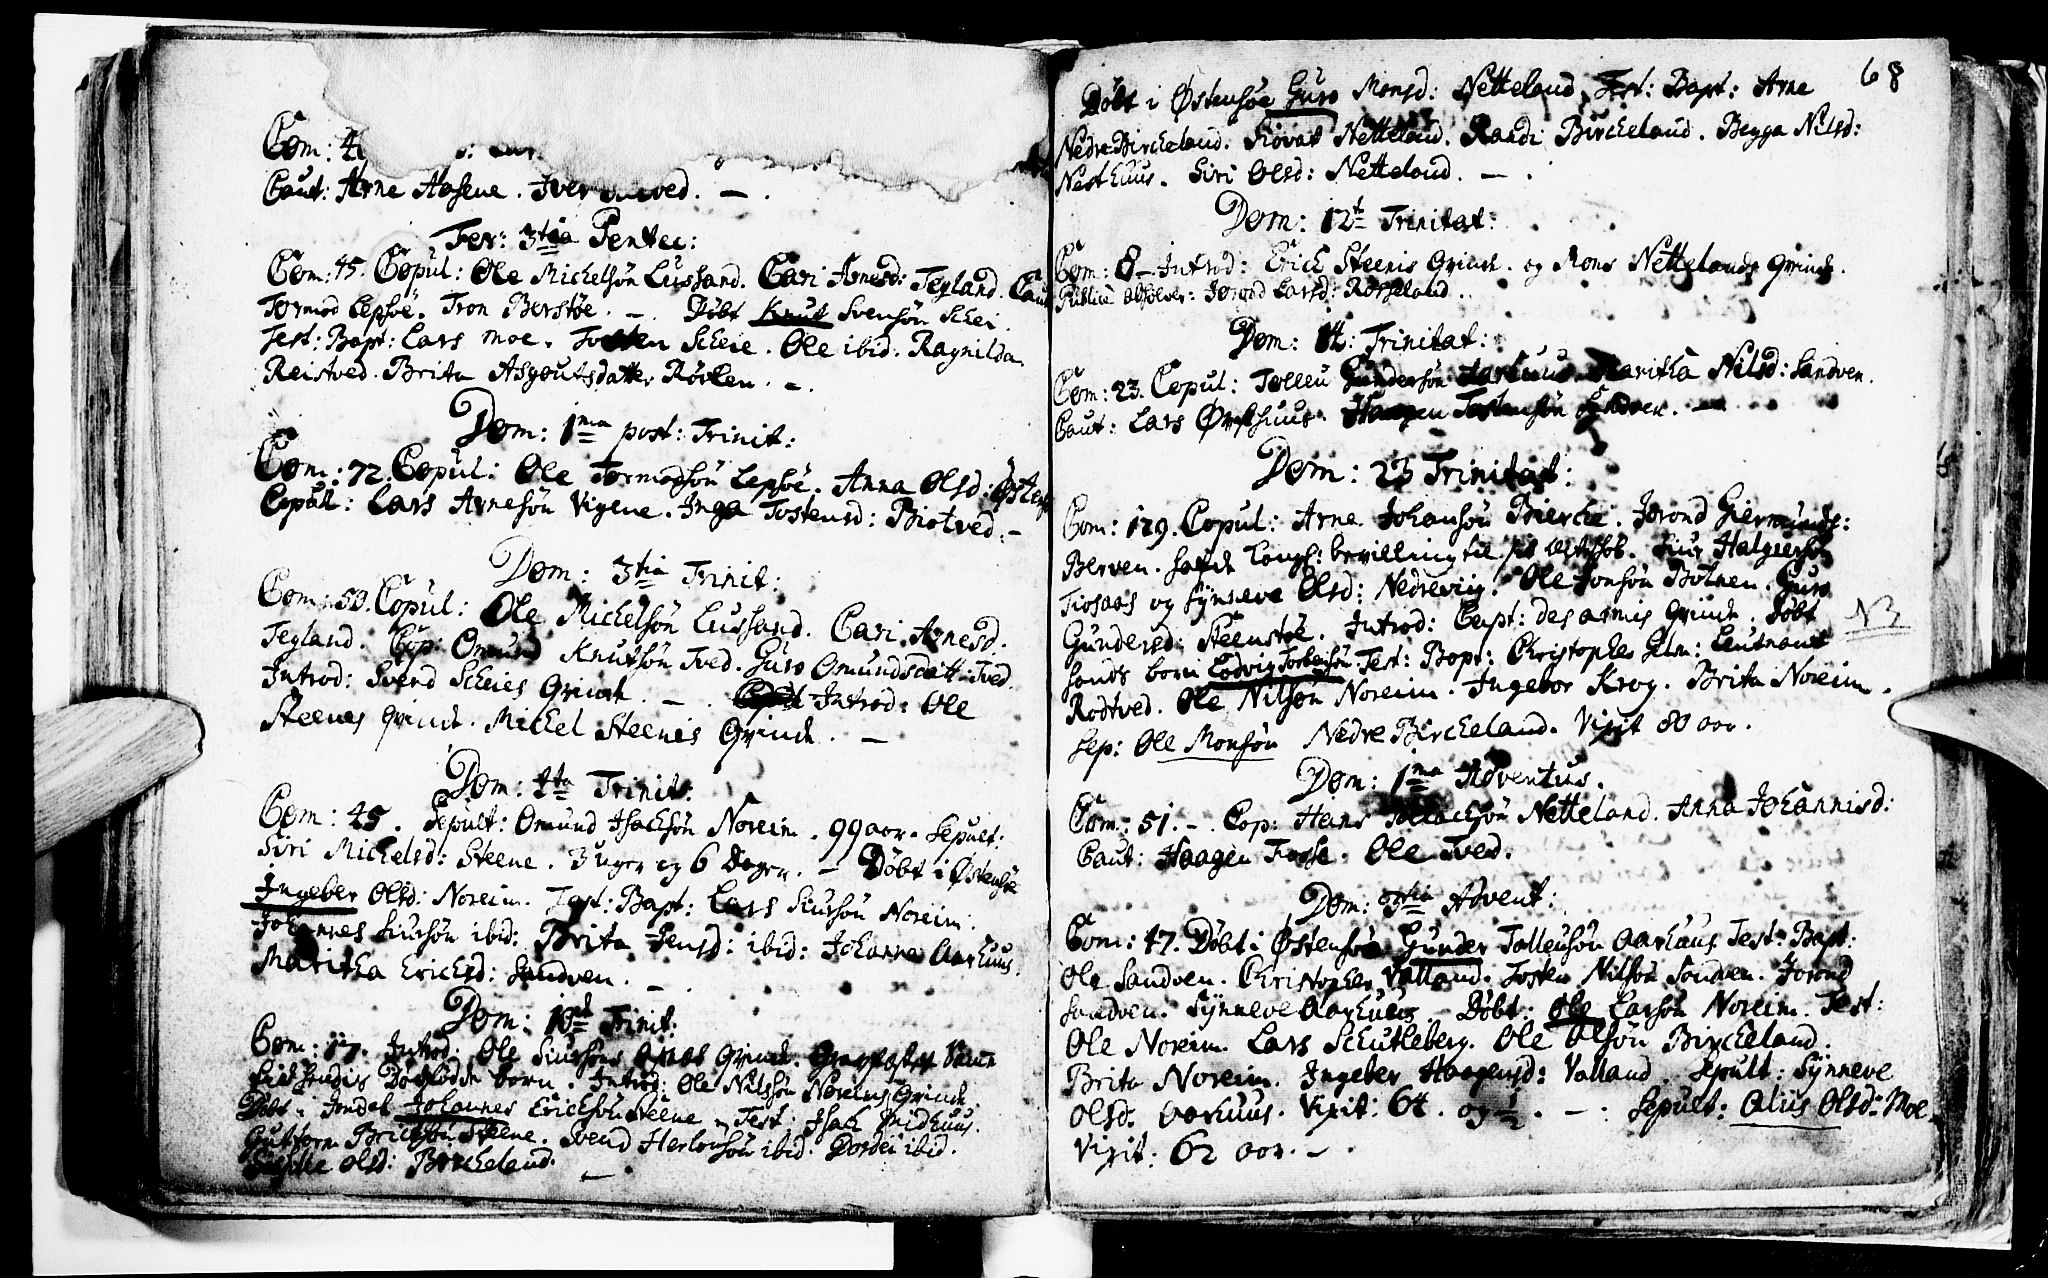 Com: 4
Caut: Arne Aasene. Iver ved. — .
Fer: 3tia Pentec:
Com: 45. Copul: Ole Michelsøn Lussand. Cari Arnesd: Tegland. Caut
Tormod Lepsøe. Tron Berstøe. —. Døbt Knut Svensøn Schei.
Test: Bapt: Lars Moe. Tosten Scheie. Ole ibid. Ragnilda
Reistved. Brita Asgoutsdatter Røvlen. — .
Dom: 1ma post: Trinit:
Com: 72. Copul: Ole Tormodsøn Lepsøe. Anna Olsd: Østens
Copul: Lars Arnesøn Vigene. Inga Tostensd: Biotved. —
Dom: 3tia Trinit:
Com: 50. Copul: Ole Michelsøn Lussand. Cari Arnesd.
Tegland. Cop: Omund Knutsøn Tved. Guro Omundsdatt. Tved.
Introd: Svend Scheies Qvinde. — . Introd: Ole
Steenes Qvinde. Michel Steenes Qvinde. —
Dom: 4ta Trinit:
Com: 45. Sepult: Omund Isachsøn Noreim. 99 aar. Sepult:
Siri Michelsd: Steene. 3 uger og 6 Dager. — Døbt i Østensøe
Ingeber Olsd: Noreim. Test: Bapt: Lars Siursøn Noreim.
Johannes Siursøn ibid: Brita Jensd: ibid: Johanne Aarhuus.
Maritha Ericksd: Sandven. — .
Dom: 10de Trinit:
Com: 17. Introd: Ole Siursøns Qvinde.
Dødfødde born. Introd: Ole Nilssøn Noreims Qvinde.
Døbt i Johannes Ericksøn Steene. Test: Isach Midhuus.
Guttorm Brichsøn Steene. Svend Herlousøn ibid. Dordei ibid.
Olsd: Bircheland. —
68
Døbt i Østensøe Guro Monsd: Netteland. Test: Bapt: Arne
Nedre Bircheland. Siovat Netteland. Randi Bircheland. Begga Nilsd:
Nesthuus. Siri Olsd: Netteland. — .
Dom: 12t Trinitat:
Com: 8 — Introd: Erick Steenis Qvinde. og Mons Nettelands Qvinde.
Publice absolver: Jorond Larsd: Rosseland.
Dom: 14: Trinitat:
Com: 23. Copul: Tolleu Gundersøn Aarhuus. Maritha Nilsd: Sandven.
Caut: Lars Øvsthuus. Haagen Tostensøn Sandven. —
Dom: 23 Trinitat:
Com: 129. Copul: Arne Johansøn Bierche. Jorond Giermunds:
Berven. hafde Kongl: bevilling til sit Siur Halgiersøn
Tiosaas og Synneve Olsd: Nedreviig. Ole Jonsøn Botnen. Guro
Gundersd: Steenstøe. Introd: Capt: des armes Qvinde. Døbt
N3
Sands born Lodvig Test: Bapt: Christopher Leutnant
Rodtved. Ole Nilsøn Noreim. Ingebor Krog. Brita Noreim.
Sep: Ole Monsøn Nedre Bircheland. Vixit 80 aar.
Dom: 1ma Adventus.
Com: 51. — . Cop: Hans Netteland. Anna Johannisd:
Caut: Haagen Fosse. Ole Tved.
Dom: 3tia Advent:
Com: 47. Døbt i Østensøe Gunder Tolleusøn Aarhuus. Test: Bapt:
Ole Sandven. Christopher Valland. Tosten Nilsøn Sandven. Jorond
Sandven. Synneve Aarhuus. Døbt: Ole Larsøn Noreim. Test:
Ole Noreim. Lars Scutleberg. Ole Olsøn Bircheland.
Brita Noreim. Ingeber Haagensd: Valland. Sepult: Synneve
Olsd: Aarhuus. Vixit: 64. og ½. — : Sepult: Alis Olsd: Moe.
Vixit: 62 aar. — .